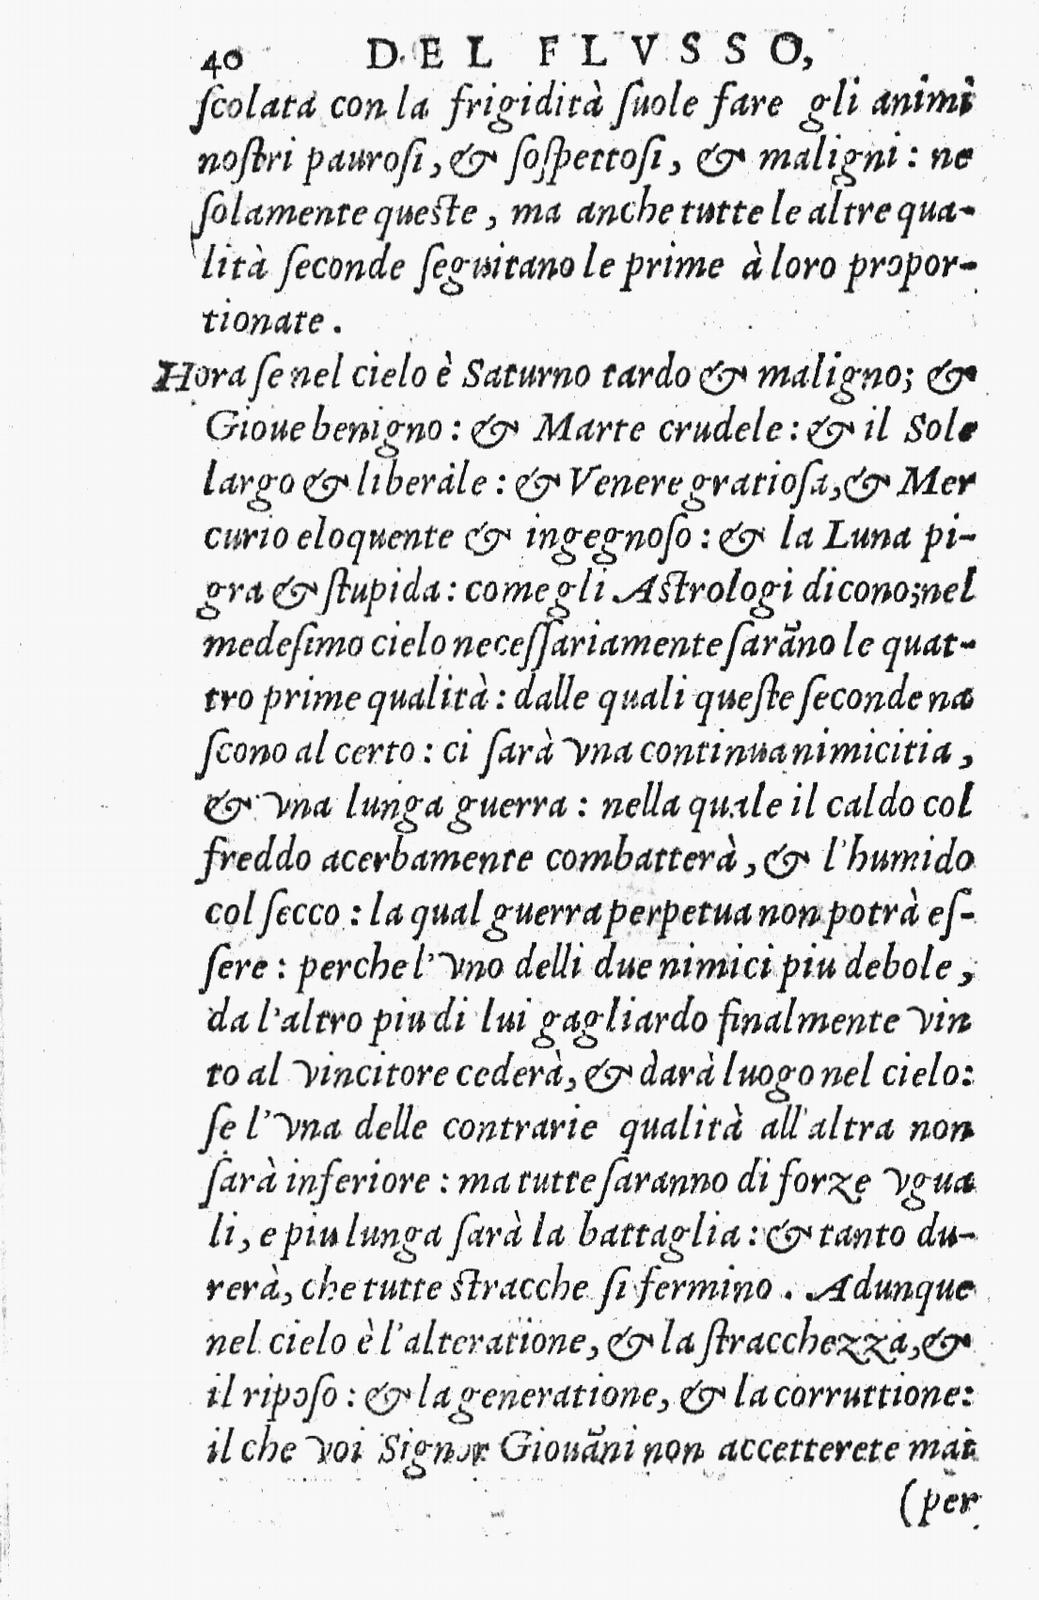 40 DEL FLVSSO,
ſcolata con la frigidità ſuole fare gli animi
noſtri pauroſi, & ſoſpettoſi, & maligni: ne
ſolamente queſte, ma anche tutte le altre qua-
lità ſeconde ſeguitano le prime à loro propor-
tionate.
Hora ſe nel cielo è Saturno tardo & maligno; &
Gioue benigno: & Marte crudele: & il Sole
largo & liberale: & Venere gratioſa, & Mer
curio eloquente & ingegnoſo: & la Luna pi-
gra & ſtupida: come gli Aſtrologi dicono; nel
medeſimo cielo neceſſariamente ſarãno le quat-
tro prime qualità: dalle quali queſte ſeconde na
ſcono al certo: ci ſarà vna continua nimicitia,
& vna lunga guerra: nella quale il caldo col
freddo acerbamente combatterà, & l'humido
col ſecco: la qual guerra perpetua non potrà eſ-
ſere: perche l'vno delli due nimici piu debole,
da l'altro piu di lui gagliardo finalmente vin
to al vincitore cederà, & darà luogo nel cielo:
ſe l'vna delle contrarie qualità all'altra non
ſarà inferiore: ma tutte ſaranno di forze vgua
li, e piu lunga ſarà la battaglia: & tanto du-
rerà, che tutte ſtracche ſi fermino. Adunque
nel cielo è l'alteratione, & la ſtracchezza, &
il ripoſo: & la generatione, & la corruttione:
il che voi Signor Giouãni non accetterete mai
(per